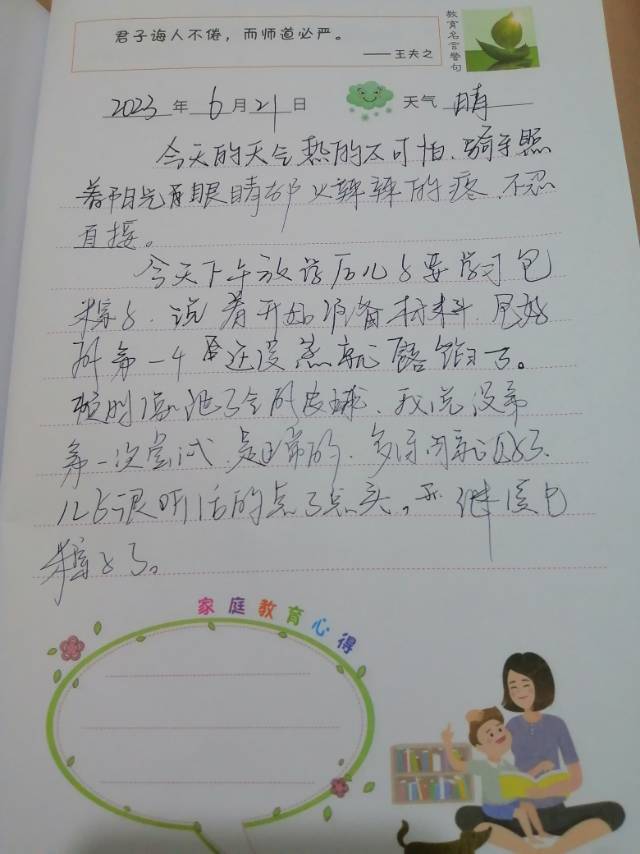 君子诲人不倦，而师道必严。
——王夫之
教育名言警句
2023 年 6 月 21 日 天气 晴
今天的天气热的太可怕、骑车照
着阳光看眼睛都火辣辣的疼、不忍
直接。
今天下午放学后儿子要学习包
粽子、说着开始准备材料、包好
第一个 还没蒸就露馅了。
顿时 泄了气的皮球、我说没事
第一次尝试、是正常的、多 就 了、
儿子很听话的点了点头。 继续包
粽子了。
家庭教育心得